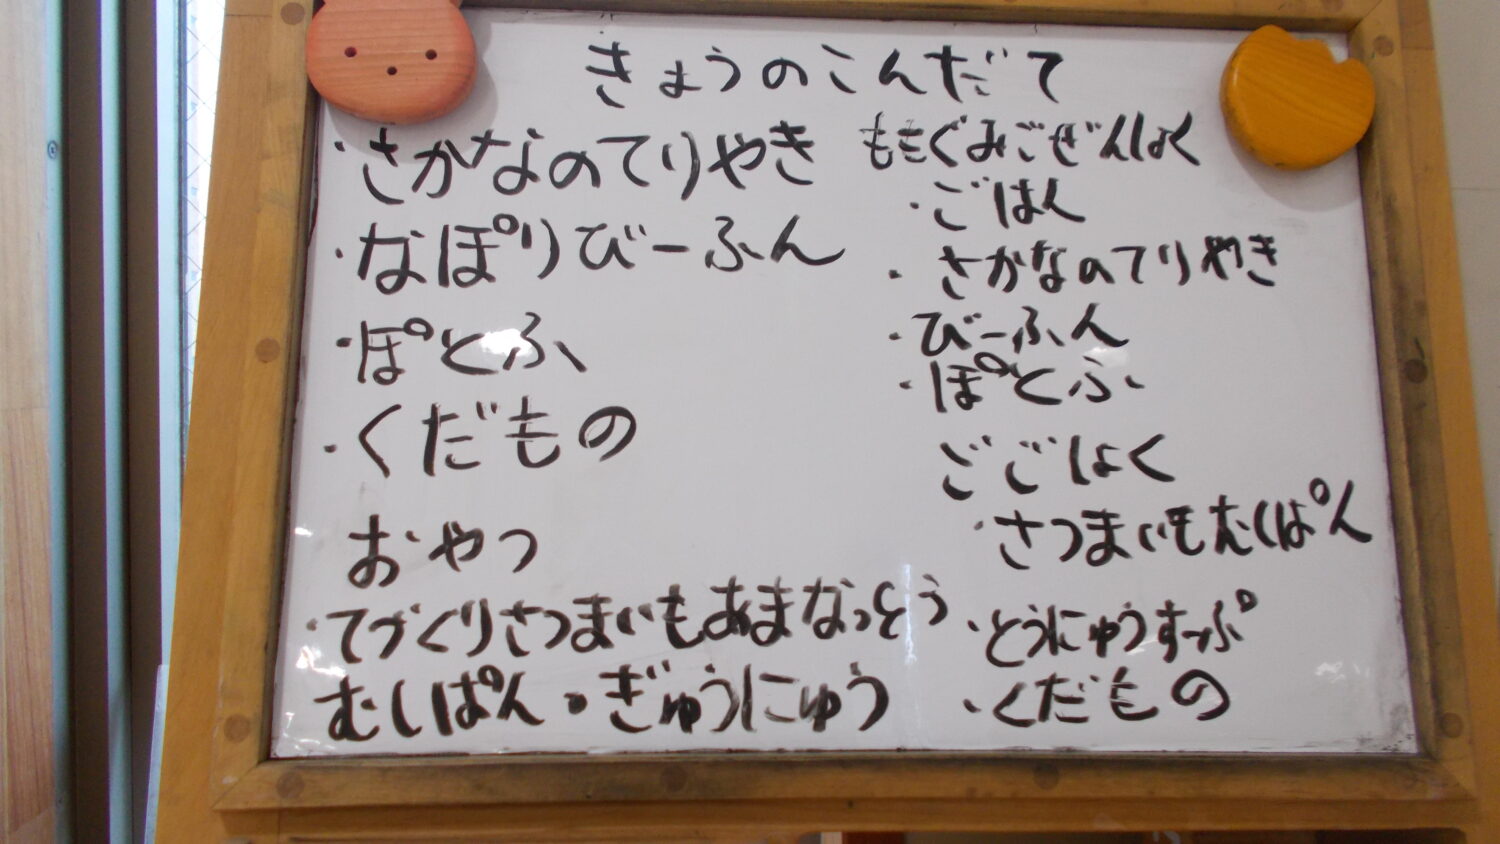 きょうのこんだて
・さかなのてりやき
・なぽりびーふん
・ぽとふ
・くだもの
おやつ
・てづくりさつまいもあまなっとう
むしぱん・ぎゅうにゅう
ももぐみごぜんしょく
・ごはん
・さかなのてりやき
・びーふん
・ぽとふ
ごごしょく
・さつまいもむしぱん
・とうにゅうすーぷ
・くだもの